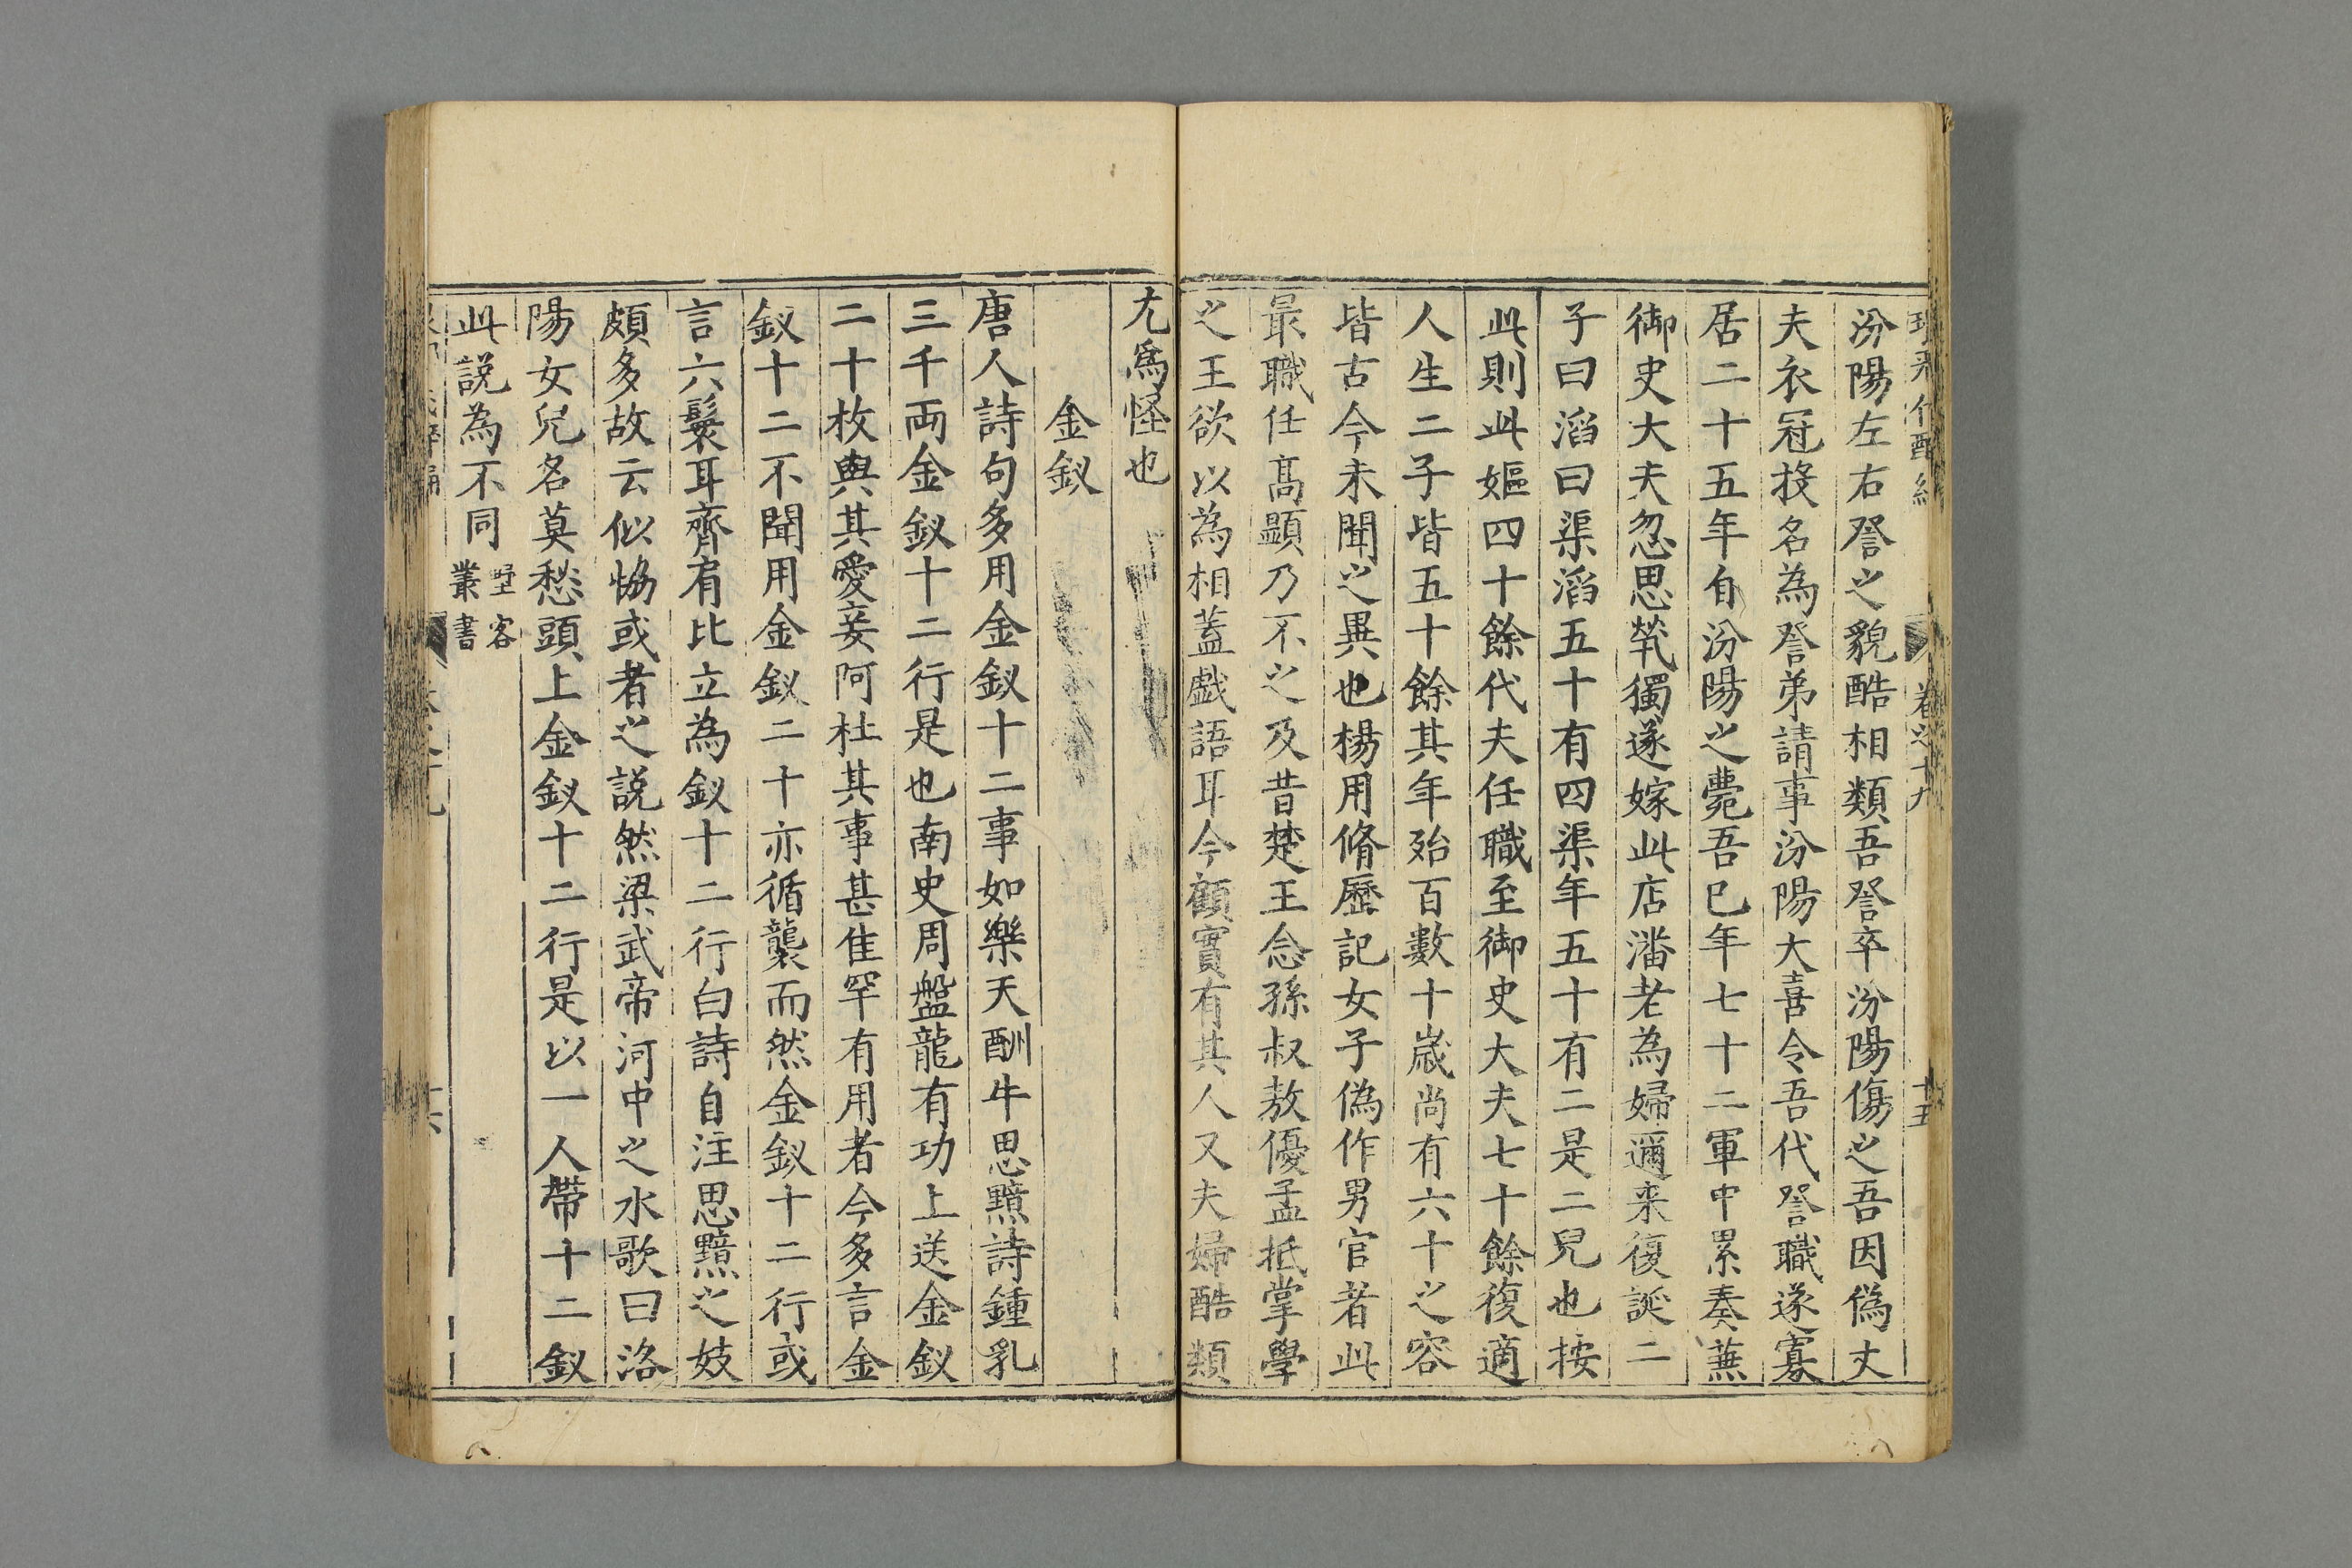 汾陽左右詧之貌酷相類吾詧卒汾陽傷之吾因偽丈
夫衣冠投名為詧弟請事汾陽大喜令吾代詧職遂寡
居二十五年自汾陽之薨吾已年七十二軍中累奏蕪
御史大夫忽思煢獨遂嫁此店潘老為婦邇来復誕二
子曰滔曰渠滔五十有四渠年五十有二是二兒也按
此則此嫗四十餘代夫任職至御史大夫七十餘復適
人生二子皆五十餘其年殆百數十歲尚有六十之容
皆古今未聞之異也楊用脩歷記女子偽作男官者此
最職任髙顕乃不之及昔楚王念孫叔敖優孟抵掌學
之王欲以為相蓋戲語耳今顧實有其人又夫婦酷類
尤為怪也
金釵
唐人詩句多用金釵十二事如樂天酬牛思黯詩鍾乳
三千両金釵十二行是也南史周盤龍有功上送金釵
二十枚與其愛妾阿杜其事甚佳罕有用者今多言金
釵十二不聞用金釵二十亦循襲而然金釵十二行或
言六鬟耳齊肩比立為釵十二行白詩自注思黯之妓
頗多故云似恊或者之説然梁武帝河中之水歌曰洛
陽女兒名莫愁頭上金釵十二行是以一人帶十二釵
此説為不同 墅客叢書
卷之十九
十五